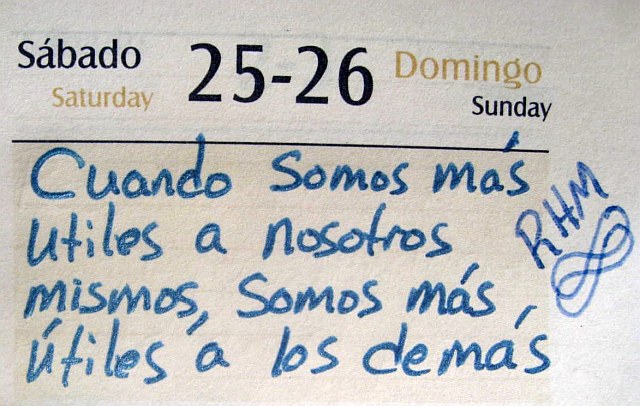 Sábado 25-26 Domingo
Saturday Sunday
Cuando somos más
útiles a nosotros
mismos, somos más
útiles a los demás
RHM